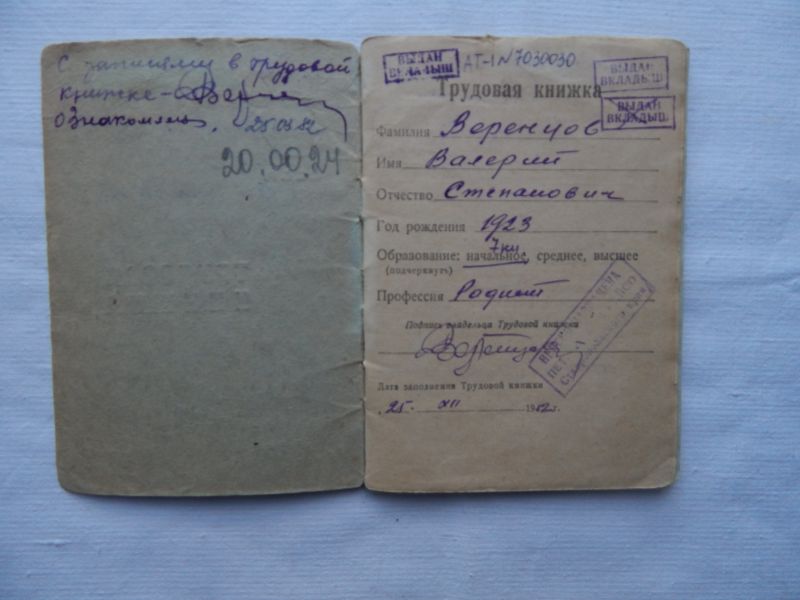 С записями в трудовой
книжке -
ознакомлен. 25.03.82
20.00.24
ВЫДАН
ВКЛАДЫШ
АТ-I N 7030030
ВЫДАН
ВКЛАДЫШ
Трудовая книжка
ВЫДАН
ВКЛАДЫШ
Фамилия Веренцов
Имя Валерий
Отчество Степанович
Год рождения 1923
7 кл
Образование: начальное, среднее, высшее
(подчеркнуть)
Профессия Радист
Подпись владельца Трудовой книжки
Дата заполнения Трудовой книжки
25. XII 1952 г.